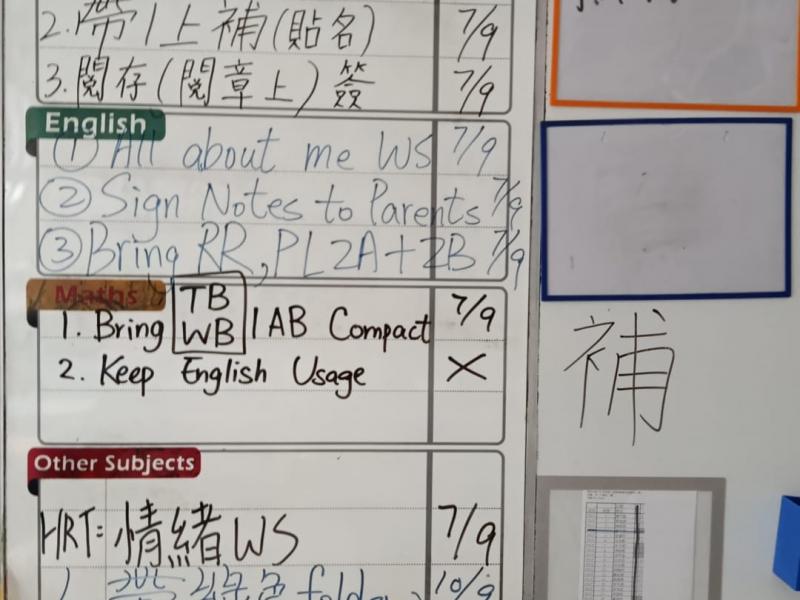 2. 帶1上補(貼名) 7/9
3. 閱存(閱章上)簽 7/9
English
① All about me WS 7/9
② Sign Notes to Parents 7/9
③ Bring RR, PL2A+2B 7/9
Maths
1. Bring TB WB 1AB Compact 7/9
2. Keep English Usage ×
補
Other Subjects
HRT: 情緒WS 7/9
1. 帶綠色folder 10/9